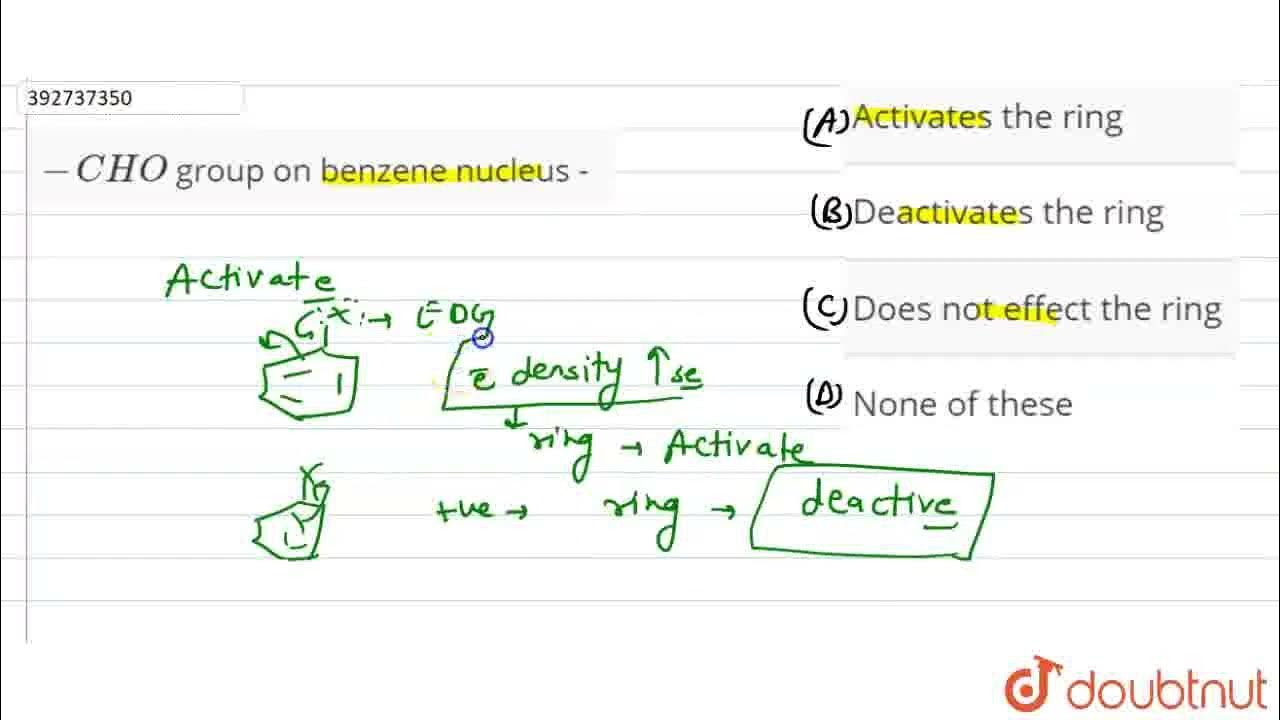 392737350
-CHO group on benzene nucleus -
(A) Activates the ring
(B) Deactivates the ring
(C) Does not effect the ring
(D) None of these
Activate
:Ẍ: → EDG
e̅ density ↑se
ring → Activate
X
+ve → ring → deactive
doubtnut